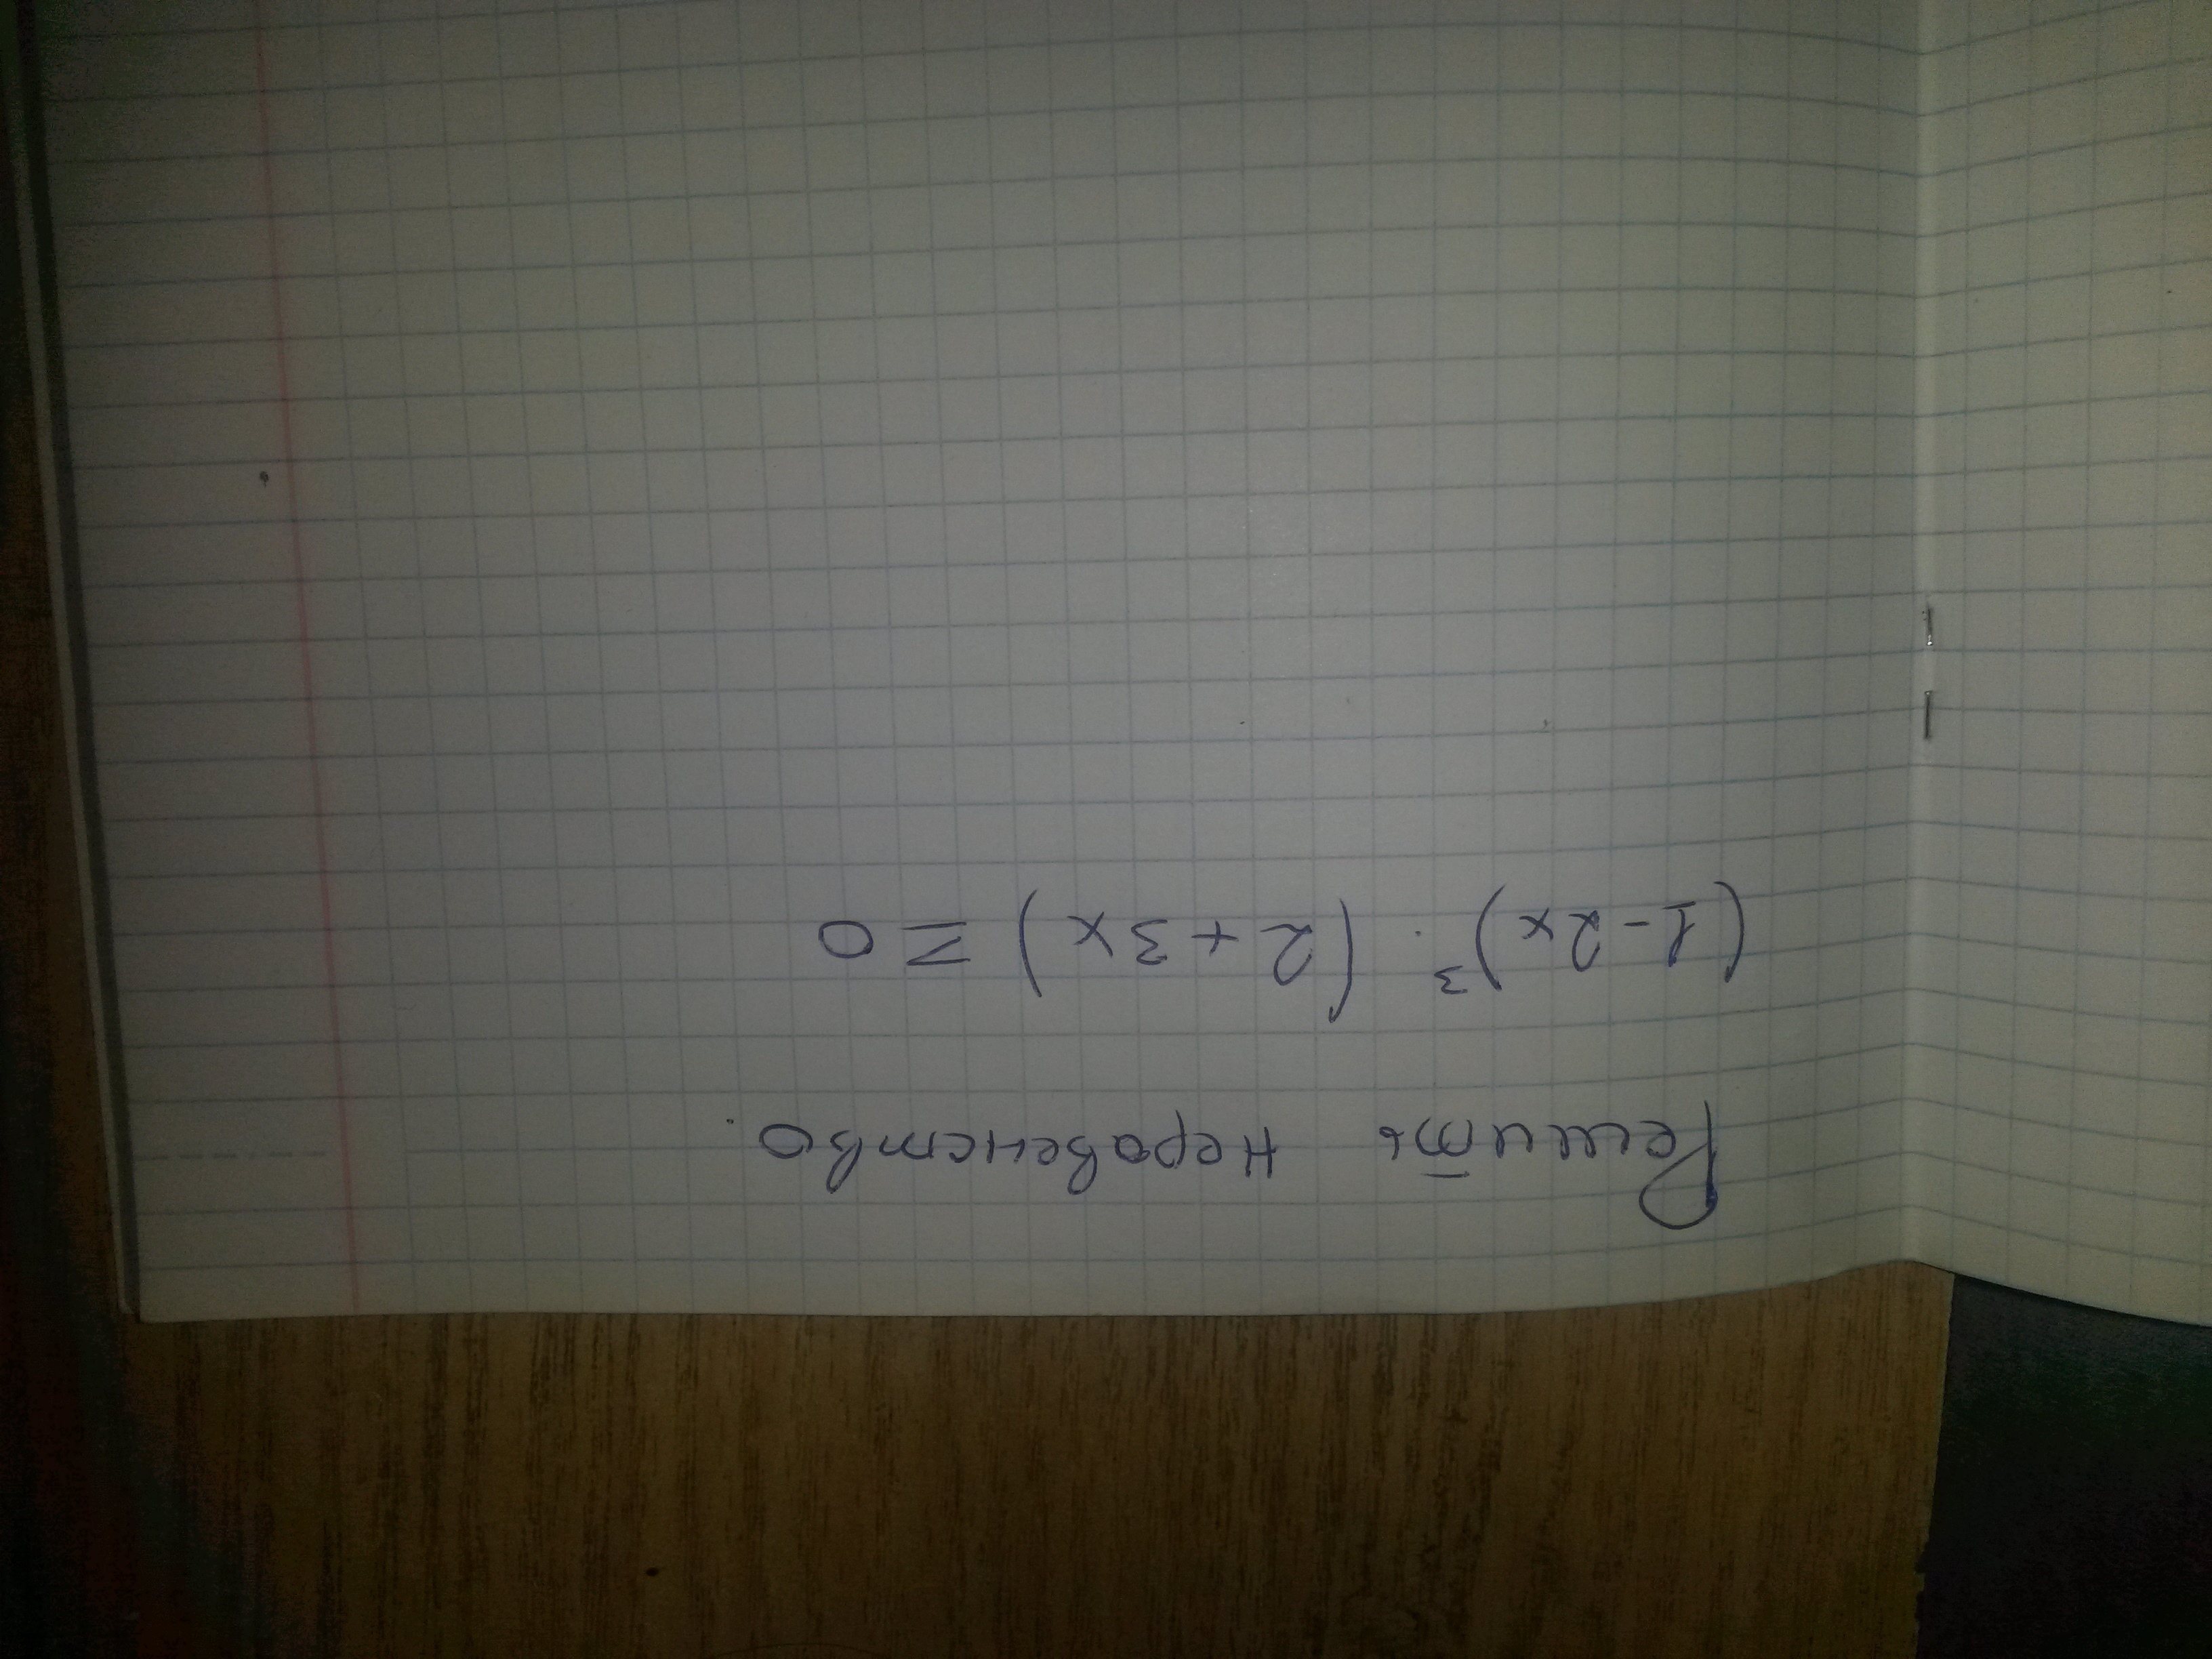 Решить неравенство.
(1-2x)³ · (2+3x) ≥ 0